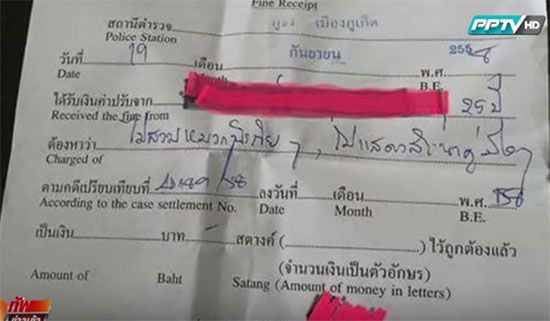 Fine Receipt
PPTV HD
สถานีตำรวจ ภูธร เมืองภูเก็ต
Police Station
วันที่ 19 เดือน กันยายน พ.ศ. 2558
Date Month B.E.
ได้รับเงินค่าปรับจาก 25 ปี
Received the fine from
ต้องหาว่า ไม่สวมหมวกนิรภัยฯ, ไม่แสดงสำเนาคู่มือฯ
Charged of
ตามคดีเปรียบเทียบที่ ลงวันที่ เดือน พ.ศ. 58
According to the case settlement No. Date Month B.E.
เป็นเงิน บาท - สตางค์ ( ) ไว้ถูกต้องแล้ว
(จำนวนเงินเป็นตัวอักษร)
Amount of Baht Satang (Amount of money in letters)